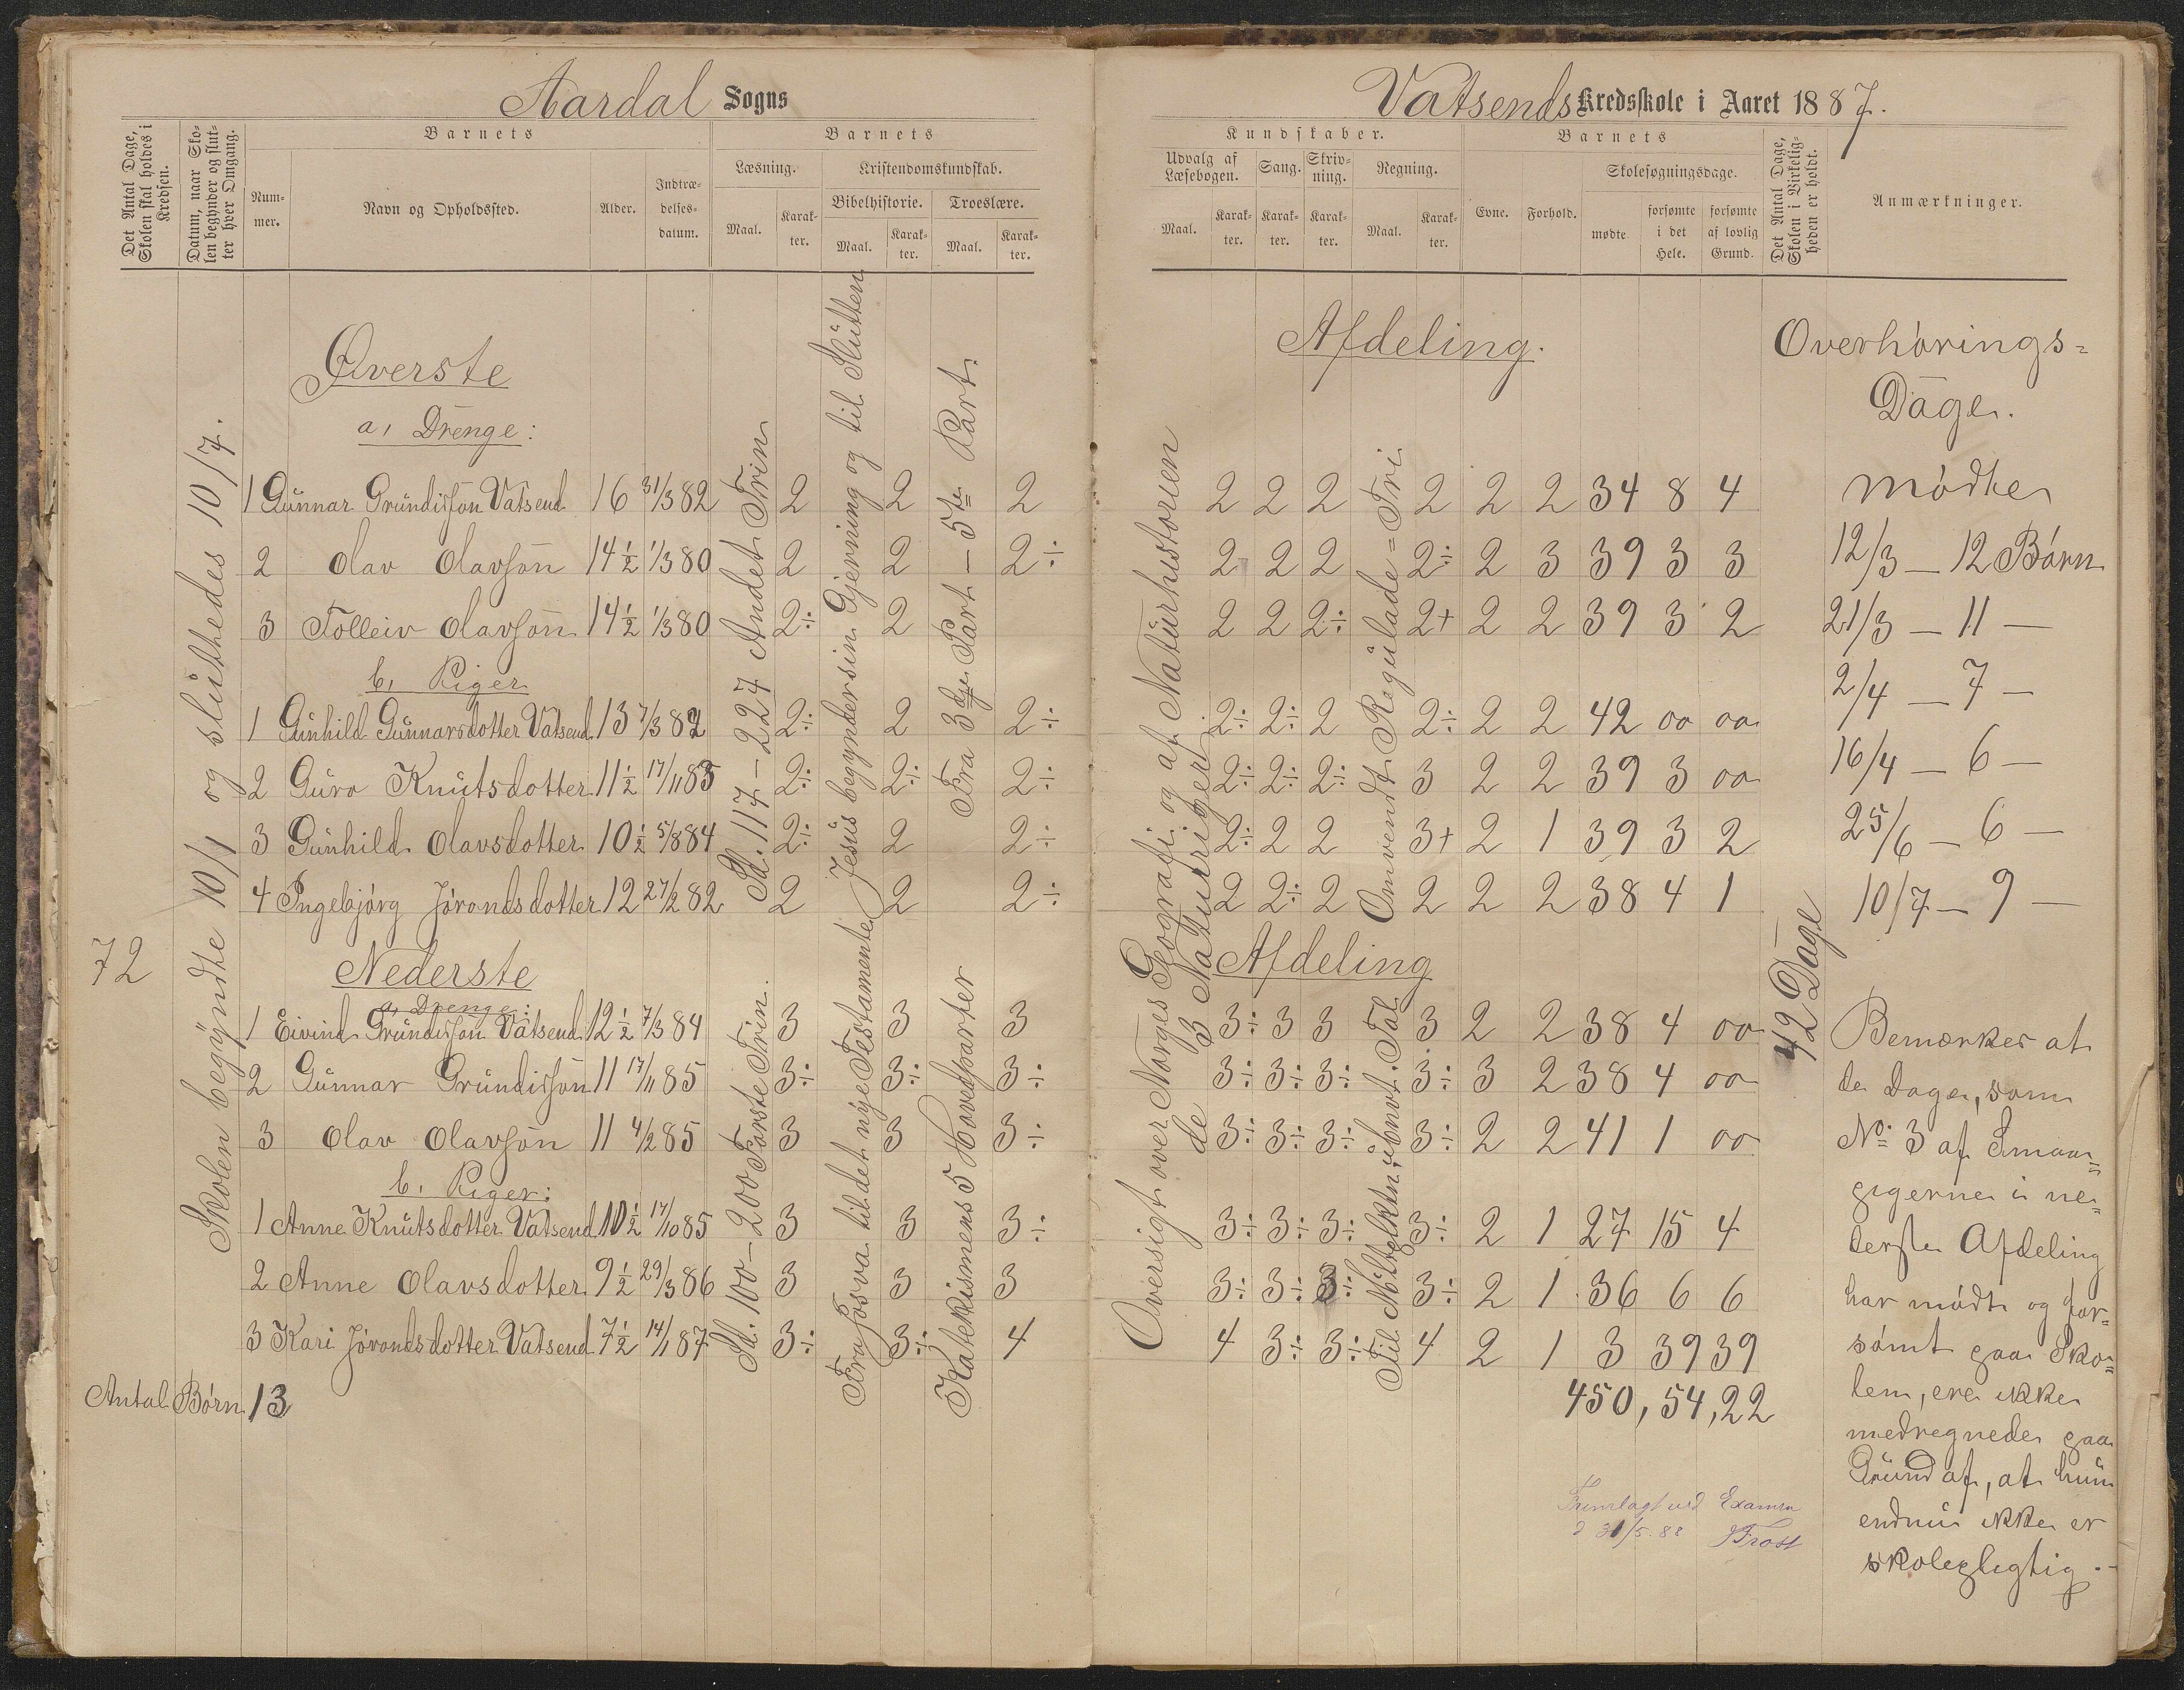 Aardal Sogns
Vatsends Kredsskole i Aaret 1887.
Det Antal Dage, Skolen skal holdes i Kredsen.
Datum, naar Skolen begynder og slutter hver Omgang.
Barnets
Nummer.
Navn og Opholdssted.
Alder.
Indtrædelsesdatum.
Barnets
Læsning.
Maal.
Karakter.
Kristendomskundskab.
Bibelhistorie.
Maal.
Karakter.
Troeslære.
Maal.
Karakter.
Kundskaber.
Udvalg af Læsebogen.
Maal.
Karakter.
Sang.
Karakter.
Skrivning.
Karakter.
Regning.
Maal.
Karakter.
Barnets
Evne.
Forhold.
Skolesøgningsdage.
mødte
forsømte i det Hele.
forsømte af lovlig Grund.
Det Antal Dage, Skolen i Virkeligheden er holdt.
Anmærkninger.
72
Skolen begyndte 10/1 og sluttedes 10/7.
Øverste Afdeling.
a, Drenge:
1 Gunnar Grundisson Vatsend 16 31/3 82 2 2 2 2 2 2 2 2 2 34 8 4
2 Olav Olavson 14½ 1/3 80 2 2 2÷ 2 2 2 2÷ 2 3 39 3 3
3 Tolleiv Olavson 14½ 1/3 80 2÷ 2 2 2 2÷ 2+ 2 2 39 3 2
b, Piger
1 Gunhild Gunnarsdotter Vatsend 13 7/3 82 2÷ 2 2÷ 2÷ 2÷ 2 2÷ 2 2 42 00 00
2 Guro Knutsdotter 11½ 17/11 83 2÷ 2÷ 2÷ 2÷ 2÷ 2÷ 3 2 2 39 3 00
3 Gunhild Olavsdotter 10½ 5/8 84 2÷ 2 2÷ 2÷ 2 2 3+ 2 1 39 3 2
4 Ingebjørg Jørondsdotter 12 27/2 82 2 2 2÷ 2 2÷ 2 2 2 2 38 4 1
Sd. 117-227 Andet Trin
Jesus begynder sin Gjerning og til Slutten
Fra 3dje Part - 5te Part.
Oversigt over Norges Geografi og af Naturhistorien
de 3 Naturriger
Omvendt Regulade=Tri
Nederste Afdeling
a, Drenge:
1 Eivind Grundisson Vatsend 12½ 7/3 84 3 3 3 3÷ 3 3 3 2 2 38 4 00
2 Gunnar Grundisson 11 17/11 85 3÷ 3÷ 3÷ 3÷ 3÷ 3÷ 3÷ 3 2 38 4 00
3 Olav Olavson 11 4/2 85 3 3 3÷ 3÷ 3÷ 3÷ 3÷ 2 2 41 1 00
b. Piger:
1 Anne Knutsdotter Vatsend 10½ 17/10 85 3 3 3÷ 3÷ 3÷ 3÷ 3÷ 2 1 27 15 4
2 Anne Olavsdotter 9½ 29/3 86 3 3 3 3÷ 3÷ 3÷ 3÷ 2 1 36 6 6
3 Kari Jørondsdotter Vatsend 7½ 14/1 87 3÷ 3÷ 4 4 3÷ 3÷ 4 2 1 3 39 39
Sd. 100-200 Første Trin.
Fra Josva til det nye Testamente
Katekismens 5 Hovedparter
Antal Børn 13
450, 54, 22
42 Dage
Overhørings=
Dage.
mødte
12/3 — 12 Børn
21/3 — 11 —
2/4 — 7 —
16/4 — 6 —
25/6 — 6 —
10/7 — 9 —
Bemærkes at
de Dage, som
No 3 af Smaa=
pigerne i ne=
derste Afdeling
har mødt og for=
sømt paa Sko=
len, ere ikke
medregnede paa
Grund af, at hun
endnu ikke er
skolepligtig.
Fremlagt ved Examen
31/5.88 Frost